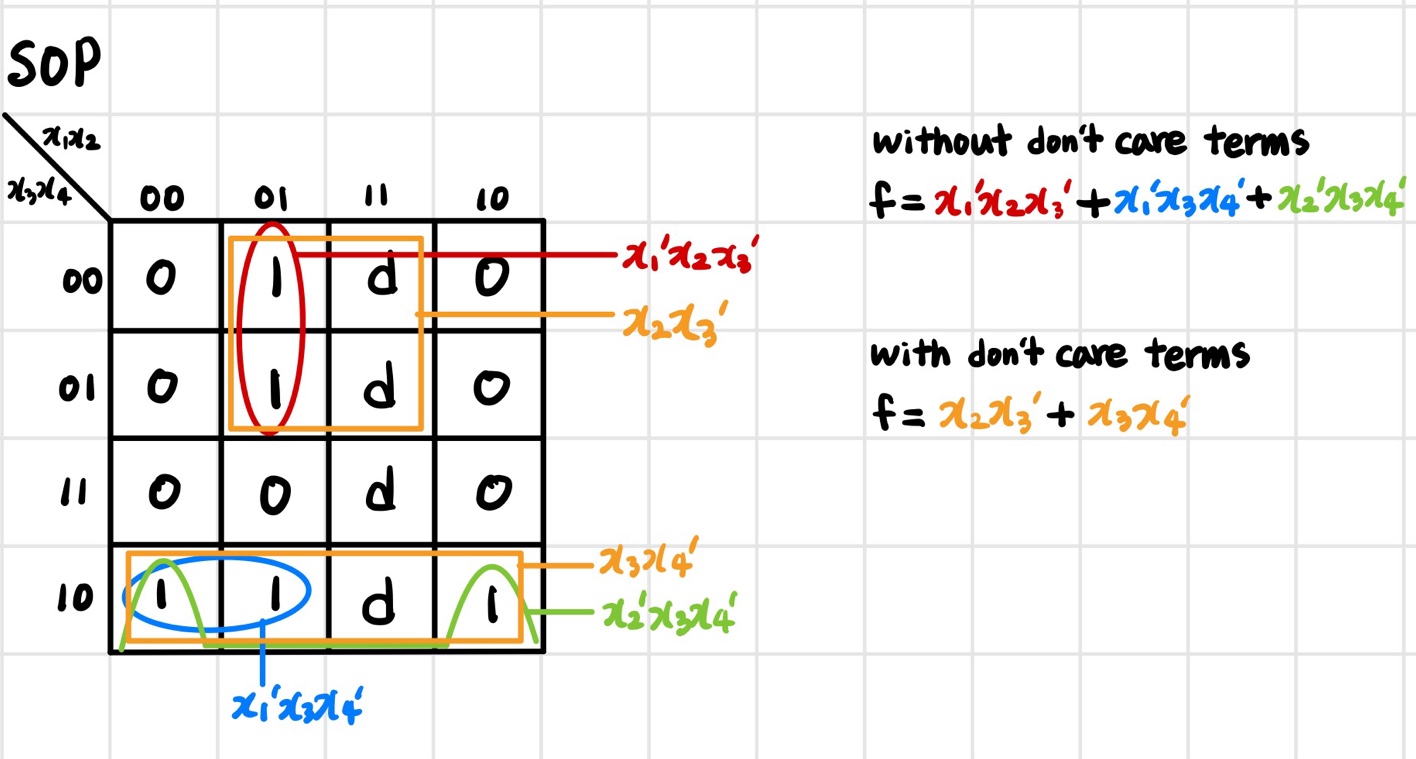 SOP
x₁x₂
x₃x₄
00 01 11 10
00 0 1 d 0
01 0 1 d 0
11 0 0 d 0
10 1 1 d 1
x₁'x₂x₃'
x₂x₃'
x₃x₄'
x₂'x₃x₄'
x₁'x₃x₄'
without don't care terms
f = x₁'x₂x₃' + x₁'x₃x₄' + x₂'x₃x₄'
with don't care terms
f = x₂x₃' + x₃x₄'